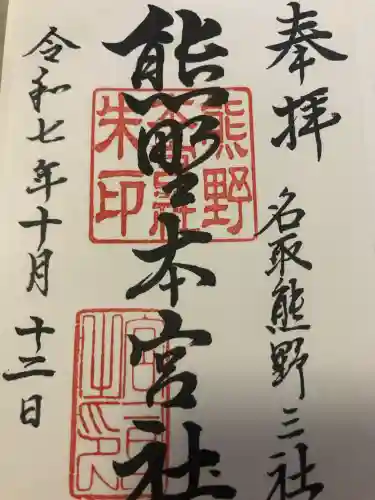 奉拝
名取熊野三社
熊野本宮社
令和七年十月十二日
熊野
朱印